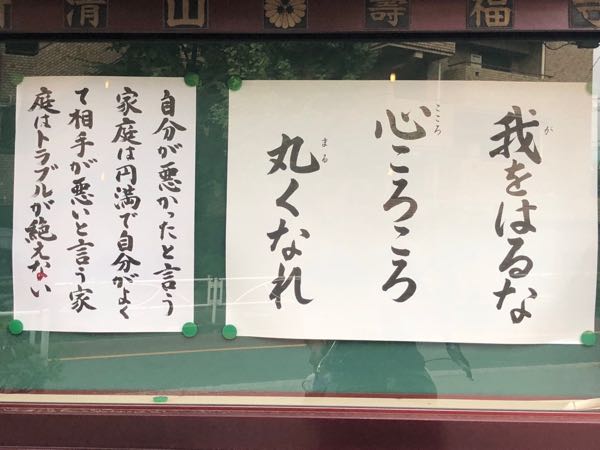 清山 壽福寺
我をはるな
が
心ころころ
こころ
丸くなれ
まる
自分が悪かったと言う
家庭は円満で自分がよく
て相手が悪いと言う家
庭はトラブルが絶えない